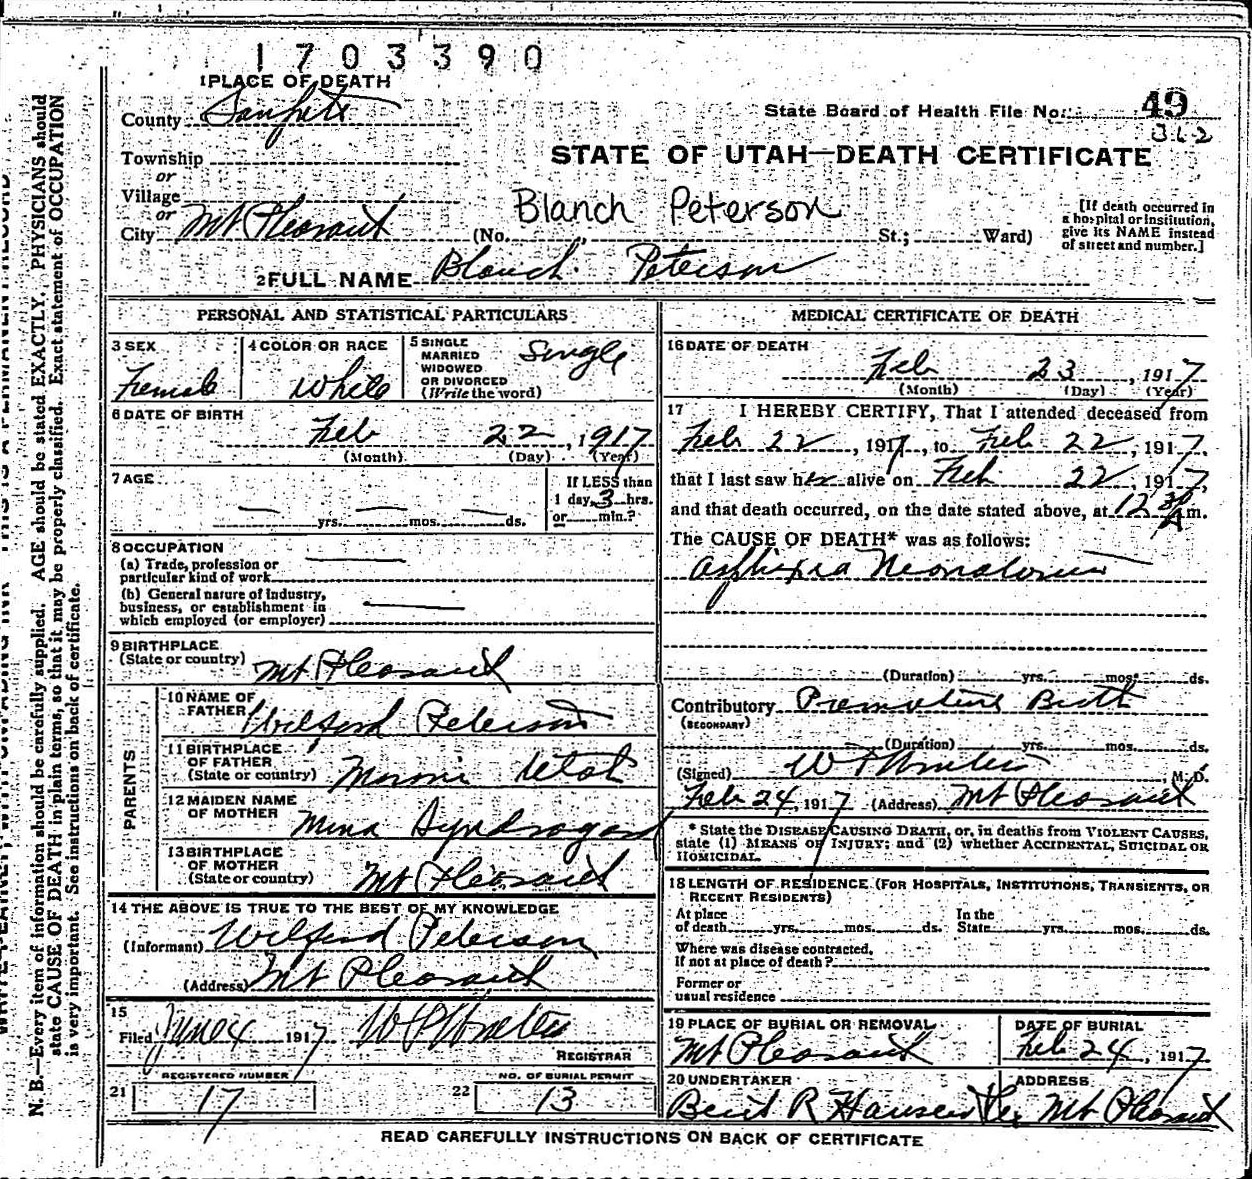 1703390
1 PLACE OF DEATH
County Sanpete
State Board of Health File No. 49
362
Township
or
Village
or
City Mt Pleasant
STATE OF UTAH—DEATH CERTIFICATE
Blanch Peterson
(No. St.; Ward)
[If death occurred in
a hospital or institution,
give its NAME instead
of street and number.]
2 FULL NAME Blanch Peterson
PERSONAL AND STATISTICAL PARTICULARS
3 SEX
Female
4 COLOR OR RACE
White
5 SINGLE
MARRIED
WIDOWED
OR DIVORCED
(Write the word)
Single
6 DATE OF BIRTH
Feb 22, 1917
(Month) (Day) (Year)
7 AGE
yrs. mos. ds.
If LESS than
1 day, 3 hrs.
or min.?
8 OCCUPATION
(a) Trade, profession or
particular kind of work
(b) General nature of industry,
business, or establishment in
which employed (or employer)
9 BIRTHPLACE
(State or country) Mt Pleasant
PARENTS
10 NAME OF
FATHER Wilford Peterson
11 BIRTHPLACE
OF FATHER
(State or country) Moroni Utah
12 MAIDEN NAME
OF MOTHER Mina
13 BIRTHPLACE
OF MOTHER
(State or country) Mt Pleasant
14 THE ABOVE IS TRUE TO THE BEST OF MY KNOWLEDGE
(Informant) Wilford Peterson
(Address) Mt Pleasant
15
Filed June 4 1917
REGISTRAR
REGISTERED NUMBER
21 17
NO. OF BURIAL PERMIT
22 13
MEDICAL CERTIFICATE OF DEATH
16 DATE OF DEATH
Feb 23, 1917
(Month) (Day) (Year)
17 I HEREBY CERTIFY, That I attended deceased from
Feb 22, 1917, to Feb 22, 1917,
that I last saw her alive on Feb 22, 1917,
and that death occurred, on the date stated above, at 12 30 A m.
The CAUSE OF DEATH* was as follows:
Asphixia Neonatorum
(Duration) yrs. mos. ds.
Contributory Premature Birth
(SECONDARY)
(Duration) yrs. mos. ds.
(Signed) M. D.
Feb 24, 1917 (Address) Mt Pleasant
* State the DISEASE CAUSING DEATH, or, in deaths from VIOLENT CAUSES,
state (1) MEANS OF INJURY; and (2) whether ACCIDENTAL, SUICIDAL OR
HOMICIDAL.
18 LENGTH OF RESIDENCE (FOR HOSPITALS, INSTITUTIONS, TRANSIENTS, OR
RECENT RESIDENTS)
At place
of death yrs. mos. ds.
In the
State yrs. mos. ds.
Where was disease contracted,
if not at place of death?
Former or
usual residence
19 PLACE OF BURIAL OR REMOVAL
Mt Pleasant
DATE OF BURIAL
Feb 24, 1917
20 UNDERTAKER
Bent R Hansen
ADDRESS
Mt Pleasant
READ CAREFULLY INSTRUCTIONS ON BACK OF CERTIFICATE
N. B.—Every item of information should be carefully supplied. AGE should be stated EXACTLY. PHYSICIANS should
state CAUSE OF DEATH in plain terms, so that it may be properly classified. Exact statement of OCCUPATION
is very important. See instructions on back of certificate.